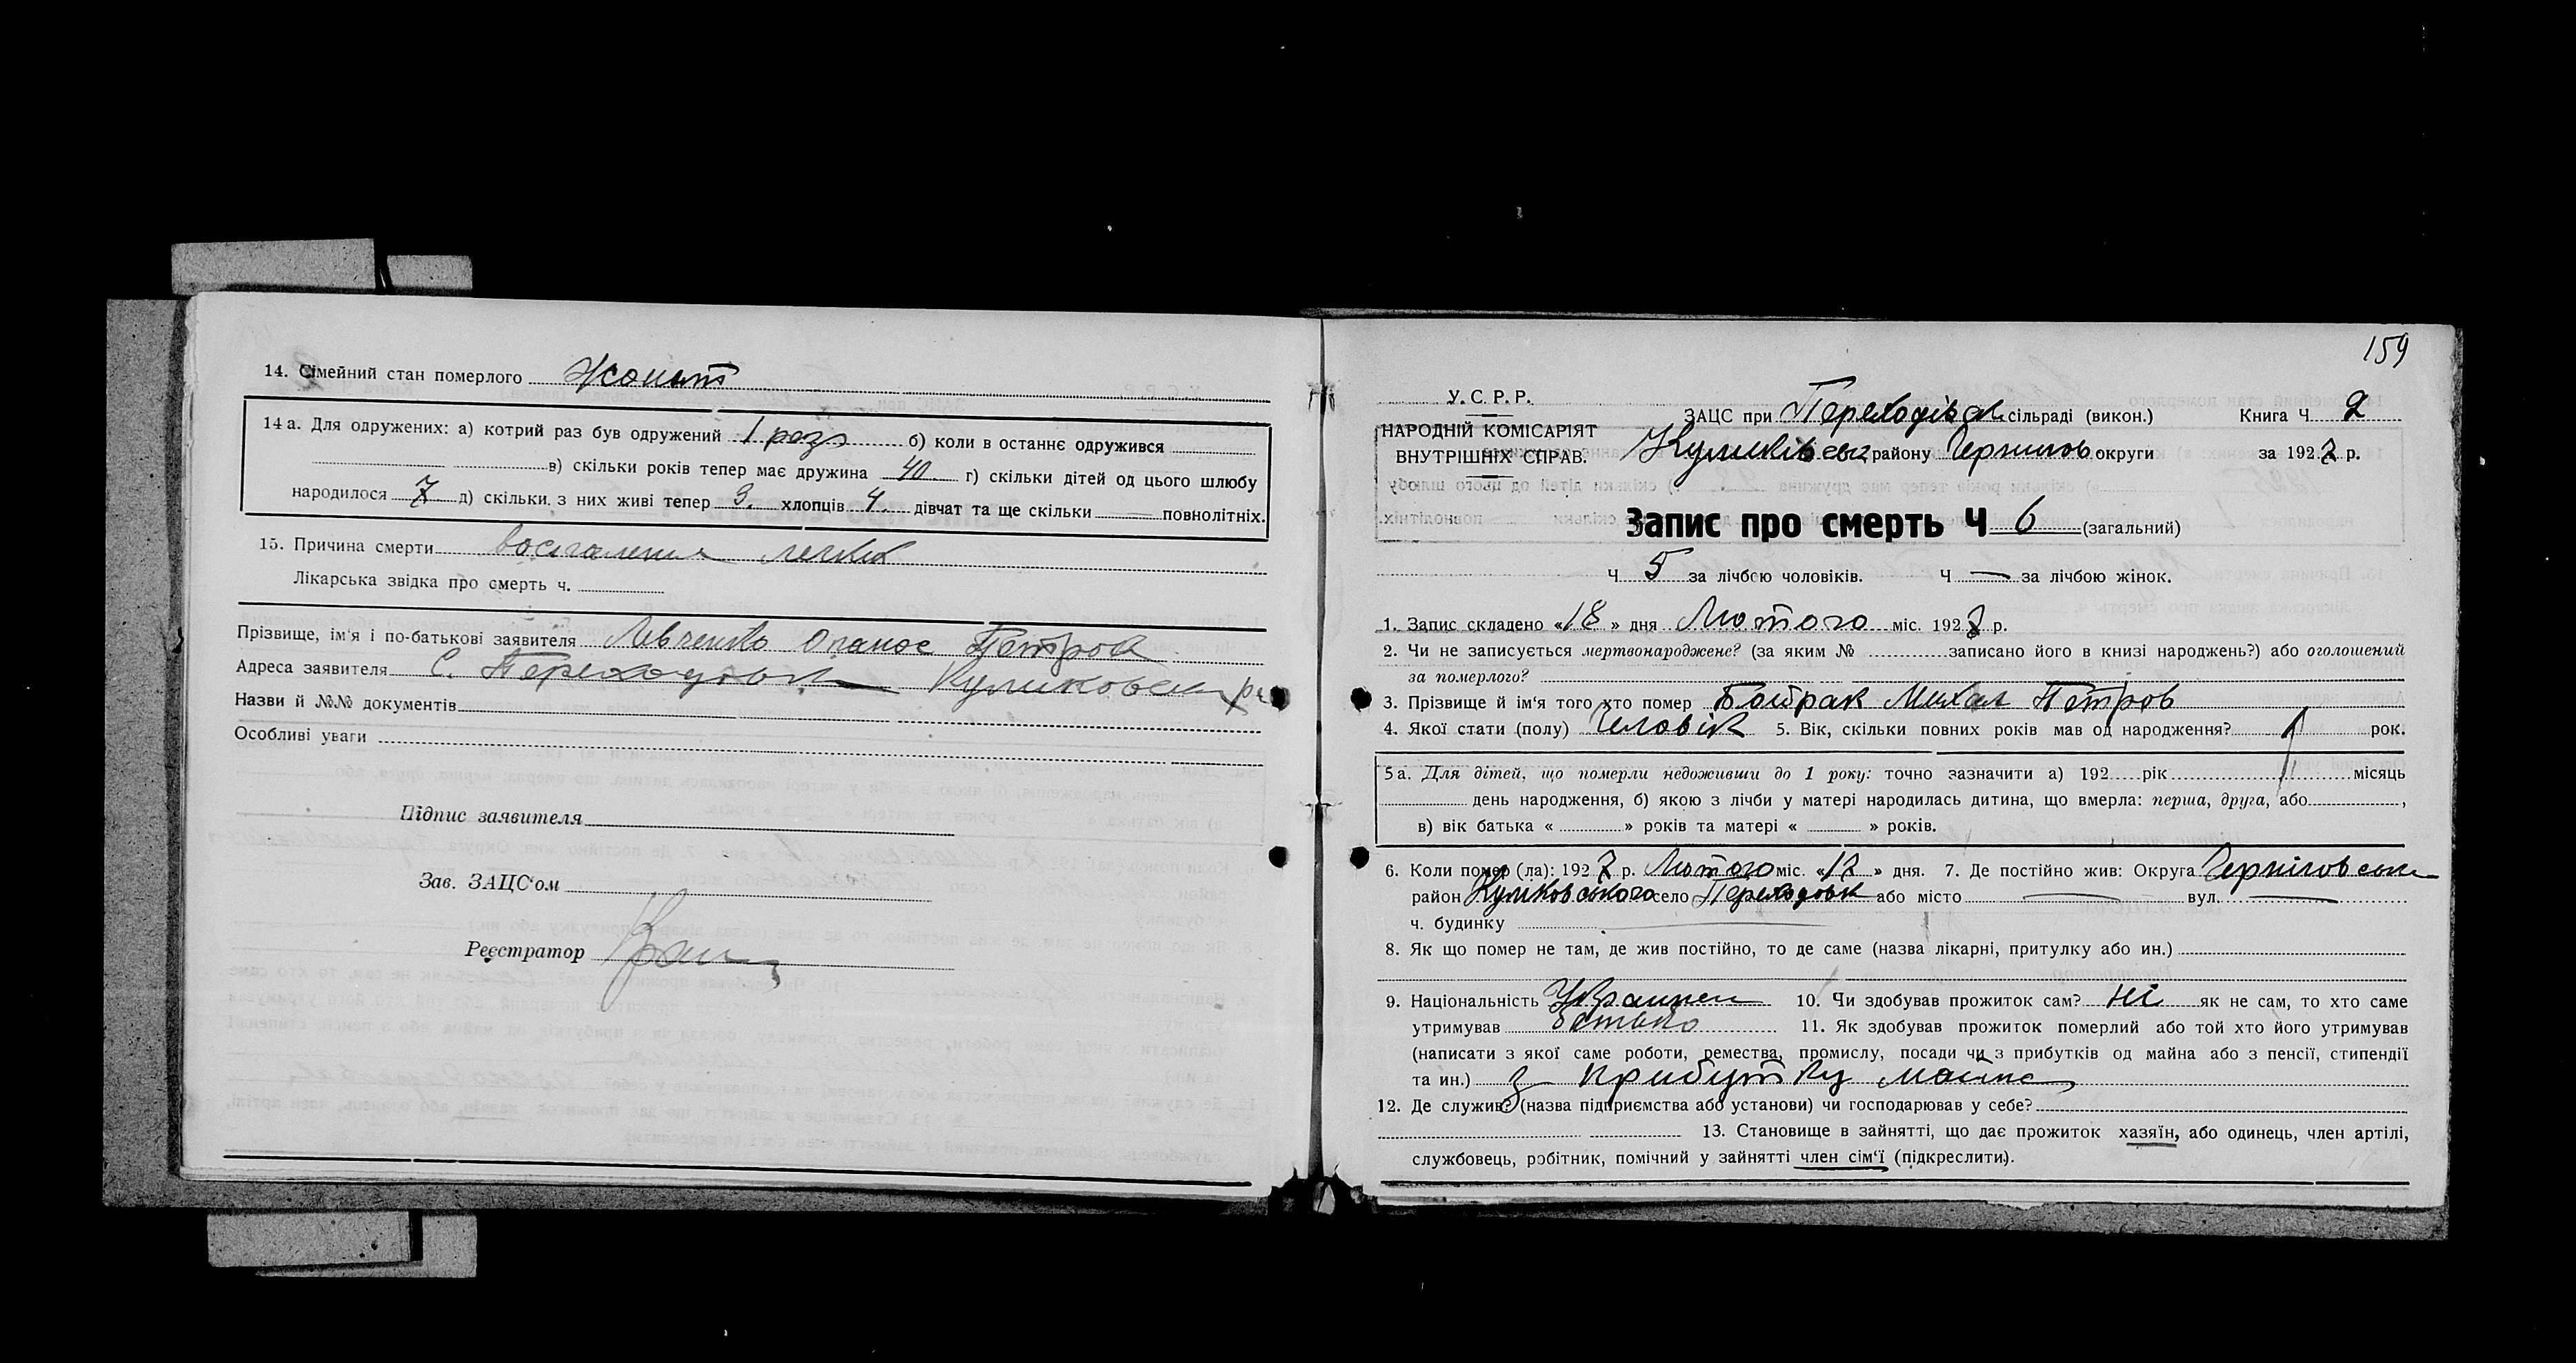 14. Сімейний стан померлого Жонат
14 а. Для одружених: а) котрий раз був одружений 1 раз б) коли в останнє одружився
в) скільки років тепер має дружина 40 г) скільки дітей од цього шлюбу
народилося 7 д) скільки з них живі тепер 3 хлопців 4 дівчат та ще скільки — повнолітніх.
15. Причина смерти воспаление легких
Лікарська звідка про смерть ч.
Прізвище, ім'я і по-батькові заявителя Левченко Опанас Петров
Адреса заявителя С. Переходовка Куликовск р
Назви й №№ документів
Особливі уваги
Підпис заявителя
Зав. ЗАЦС'ом
Реєстратор
159
У. С. Р. Р.
НАРОДНІЙ КОМІСАРІЯТ
ВНУТРІШНІХ СПРАВ.
ЗАЦС при Переходівск сільраді (викон.) Книга Ч 2
Куликівськ району Чернигов округи за 1927 р.
Запис про смерть Ч 6 (загальний)
Ч 5 за лічбою чоловіків. Ч — за лічбою жінок.
1. Запис складено «18» дня Лютого міс. 1927 р.
2. Чи не записується мертвонароджене? (за яким № записано його в книзі народжень?) або оголошений
за померлого?
3. Прізвище й ім'я того хто помер Бойрак Михал Петров
4. Якої стати (полу) Чоловік 5. Вік, скільки повних років мав од народження? 1 рок.
5 а. Для дітей, що померли недоживши до 1 року: точно зазначити а) 192 рік місяць
день народження, б) якою з лічби у матері народилась дитина, що вмерла: перша, друга, або ,
в) вік батька « » років та матері « » років.
6. Коли помер (ла): 1927 р. Лютого міс. «17» дня. 7. Де постійно жив: Округа Черніговська
район Куліковського село Переходовк або місто — вул. —
ч. будинку
8. Як що помер не там, де жив постійно, то де саме (назва лікарні, притулку або ин.)
9. Національність Украинец 10. Чи здобував прожиток сам? Ні як не сам, то хто саме
утримував Батько 11. Як здобував прожиток померлий або той хто його утримував
(написати з якої саме роботи, ремества, промислу, посади чи з прибутків од майна або з пенсії, стипендії
та ин.) З прибутку майна
12. Де служив? (назва підприємства або установи) чи господарював у себе?
13. Становище в зайнятті, що дає прожиток хазяїн, або одинець, член артілі,
службовець, робітник, помічний у зайнятті член сім'ї (підкреслити).